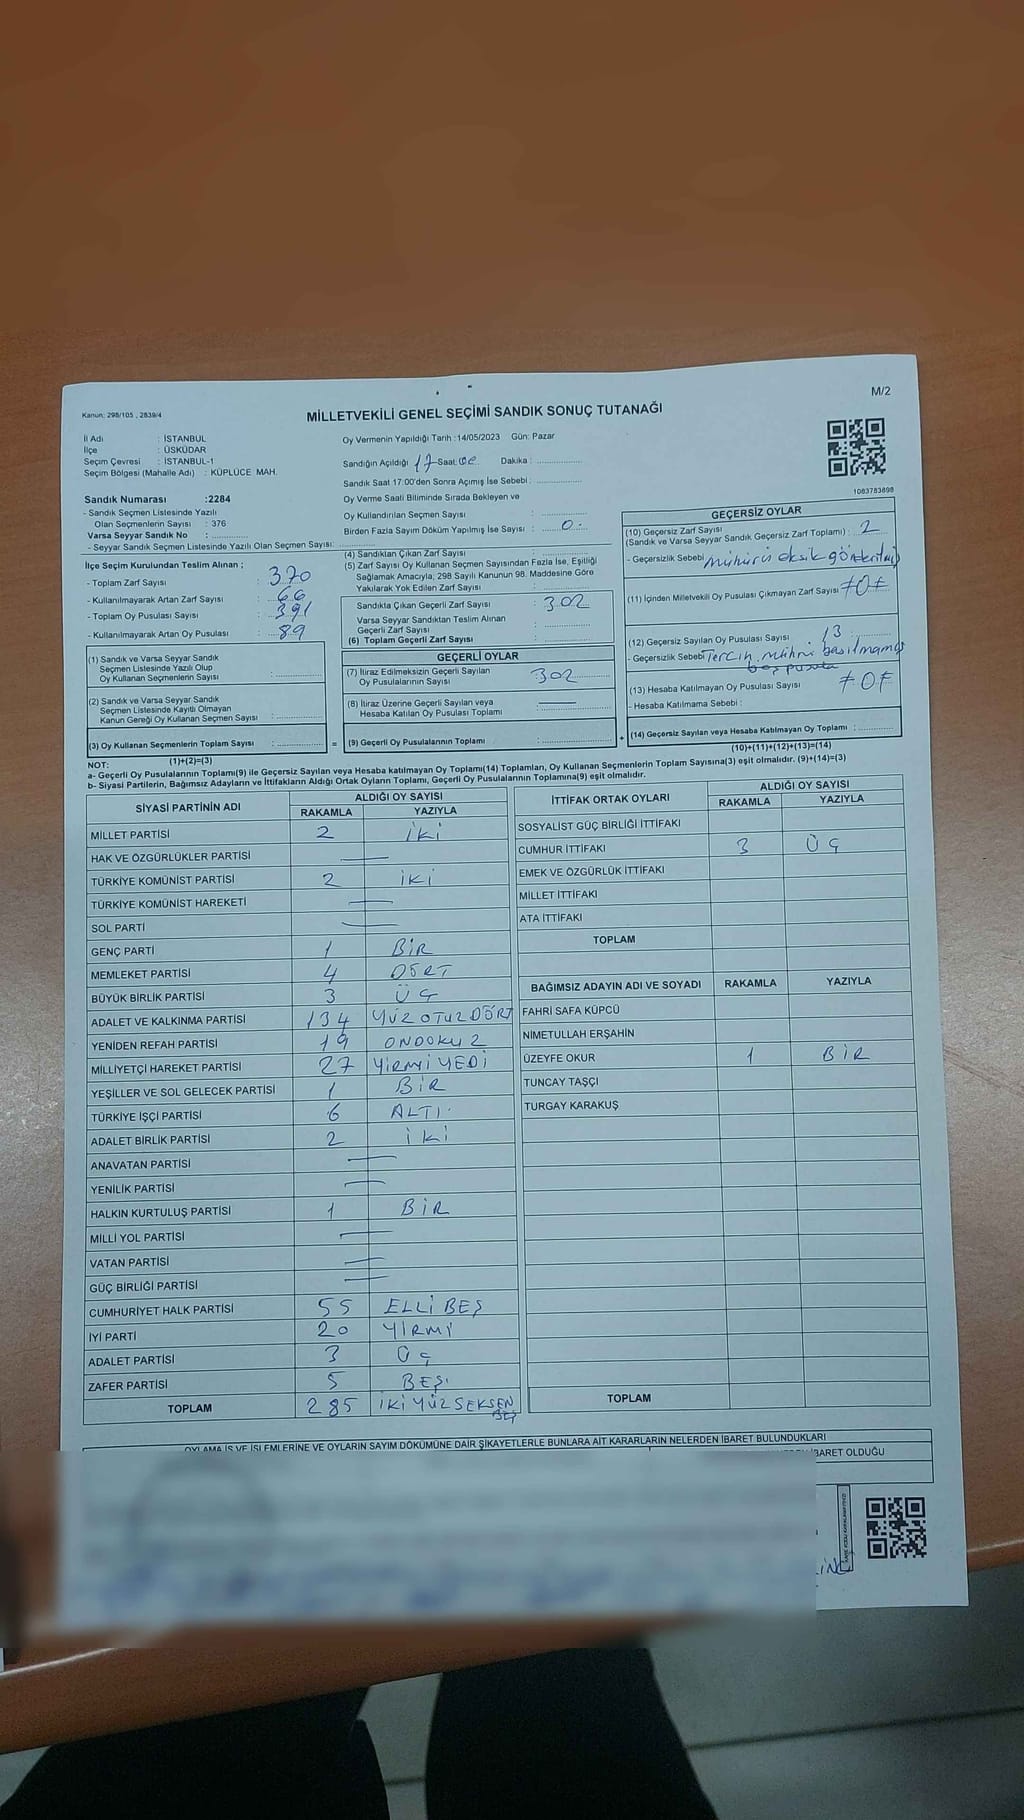 M/2
Kanun: 298/105 , 2839/4
MİLLETVEKİLİ GENEL SEÇİMİ SANDIK SONUÇ TUTANAĞI
İl Adı : İSTANBUL
İlçe : ÜSKÜDAR
Seçim Çevresi : İSTANBUL-1
Seçim Bölgesi (Mahalle Adı) : KÜPLÜCE MAH.
Sandık Numarası :2284
- Sandık Seçmen Listesinde Yazılı
Olan Seçmenlerin Sayısı : 376
Varsa Seyyar Sandık No :
- Seyyar Sandık Seçmen Listesinde Yazılı Olan Seçmen Sayısı:
İlçe Seçim Kurulundan Teslim Alınan ;
- Toplam Zarf Sayısı : 370
- Kullanılmayarak Artan Zarf Sayısı : 66
- Toplam Oy Pusulası Sayısı : 391
- Kullanılmayarak Artan Oy Pusulası : 89
(1) Sandık ve Varsa Seyyar Sandık
Seçmen Listesinde Yazılı Olup
Oy Kullanan Seçmenlerin Sayısı :
(2) Sandık ve Varsa Seyyar Sandık
Seçmen Listesinde Kayıtlı Olmayan
Kanun Gereği Oy Kullanan Seçmen Sayısı :
(3) Oy Kullanan Seçmenlerin Toplam Sayısı : =
Oy Vermenin Yapıldığı Tarih :14/05/2023 Gün: Pazar
Sandığın Açıldığı 17 Saat: 00 Dakika :
Sandık Saat 17:00'den Sonra Açımış İse Sebebi :
Oy Verme Saati Bitiminde Sırada Bekleyen ve
Oy Kullandırılan Seçmen Sayısı :
Birden Fazla Sayım Döküm Yapılmış İse Sayısı : 0.
(4) Sandıktan Çıkan Zarf Sayısı :
(5) Zarf Sayısı Oy Kullanan Seçmen Sayısından Fazla İse, Eşitliği
Sağlamak Amacıyla, 298 Sayılı Kanunun 98. Maddesine Göre
Yakılarak Yok Edilen Zarf Sayısı :
Sandıkta Çıkan Geçerli Zarf Sayısı : 302
Varsa Seyyar Sandıktan Teslim Alınan
Geçerli Zarf Sayısı :
(6) Toplam Geçerli Zarf Sayısı :
GEÇERLİ OYLAR
(7) İtiraz Edilmeksizin Geçerli Sayılan
Oy Pusulalarının Sayısı : 302
(8) İtiraz Üzerine Geçerli Sayılan veya
Hesaba Katılan Oy Pusulası Toplamı :
(9) Geçerli Oy Pusulalarının Toplamı : +
1083783898
GEÇERSİZ OYLAR
(10) Geçersiz Zarf Sayısı
(Sandık ve Varsa Seyyar Sandık Geçersiz Zarf Toplamı) : 2
- Geçersizlik Sebebi mühürü eksik
(11) İçinden Milletvekili Oy Pusulası Çıkmayan Zarf Sayısı ≠0≠
(12) Geçersiz Sayılan Oy Pusulası Sayısı : 13
- Geçersizlik Sebebi Tercih mührü basılmamış
boş pusula
(13) Hesaba Katılmayan Oy Pusulası Sayısı ≠0≠
- Hesaba Katılmama Sebebi :
(14) Geçersiz Sayılan veya Hesaba Katılmayan Oy Toplamı :
(10)+(11)+(12)+(13)=(14)
NOT: (1)+(2)=(3)
a- Geçerli Oy Pusulalarının Toplamı(9) ile Geçersiz Sayılan veya Hesaba katılmayan Oy Toplamı(14) Toplamları, Oy Kullanan Seçmenlerin Toplam Sayısına(3) eşit olmalıdır. (9)+(14)=(3)
b- Siyasi Partilerin, Bağımsız Adayların ve İttifakların Aldığı Ortak Oyların Toplamı, Geçerli Oy Pusulalarının Toplamına(9) eşit olmalıdır.
SİYASİ PARTİNİN ADI ALDIĞI OY SAYISI
RAKAMLA YAZIYLA
MİLLET PARTİSİ 2 İKİ
HAK VE ÖZGÜRLÜKLER PARTİSİ —
TÜRKİYE KOMÜNİST PARTİSİ 2 İKİ
TÜRKİYE KOMÜNİST HAREKETİ —
SOL PARTİ —
GENÇ PARTİ 1 BİR
MEMLEKET PARTİSİ 4 DÖRT
BÜYÜK BİRLİK PARTİSİ 3 ÜÇ
ADALET VE KALKINMA PARTİSİ 134 YÜZ OTUZ DÖRT
YENİDEN REFAH PARTİSİ 19 ONDOKUZ
MİLLİYETÇİ HAREKET PARTİSİ 27 YİRMİ YEDİ
YEŞİLLER VE SOL GELECEK PARTİSİ 1 BİR
TÜRKİYE İŞÇİ PARTİSİ 6 ALTI.
ADALET BİRLİK PARTİSİ 2 İKİ
ANAVATAN PARTİSİ —
YENİLİK PARTİSİ —
HALKIN KURTULUŞ PARTİSİ 1 BİR
MİLLİ YOL PARTİSİ —
VATAN PARTİSİ —
GÜÇ BİRLİĞİ PARTİSİ —
CUMHURİYET HALK PARTİSİ 55 ELLİ BEŞ
İYİ PARTİ 20 YİRMİ
ADALET PARTİSİ 3 ÜÇ
ZAFER PARTİSİ 5 BEŞ.
TOPLAM 285 İKİ YÜZ SEKSEN
BEŞ
İTTİFAK ORTAK OYLARI ALDIĞI OY SAYISI
RAKAMLA YAZIYLA
SOSYALİST GÜÇ BİRLİĞİ İTTİFAKI
CUMHUR İTTİFAKI 3 ÜÇ
EMEK VE ÖZGÜRLÜK İTTİFAKI
MİLLET İTTİFAKI
ATA İTTİFAKI
TOPLAM
BAĞIMSIZ ADAYIN ADI VE SOYADI RAKAMLA YAZIYLA
FAHRİ SAFA KÜPCÜ
NİMETULLAH ERŞAHİN
ÜZEYFE OKUR 1 BİR
TUNCAY TAŞÇI
TURGAY KARAKUŞ
TOPLAM
OYLAMA İŞ VE İŞLEMLERİNE VE OYLARIN SAYIM DÖKÜMÜNE DAİR ŞİKAYETLERLE BUNLARA AİT KARARLARIN NELERDEN İBARET BULUNDUKLARI
İBARET OLDUĞU